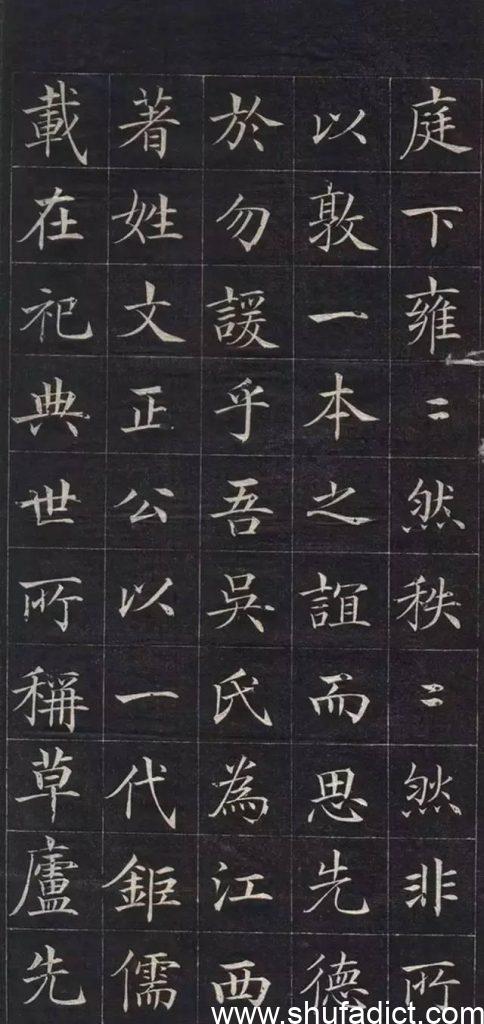 庭下雍〻然秩〻然非所
以敦一本之誼而思先德
於勿諼乎吾吳氏為江西
著姓文正公以一代鉅儒
載在祀典世所稱草廬先
www.shufadict.com